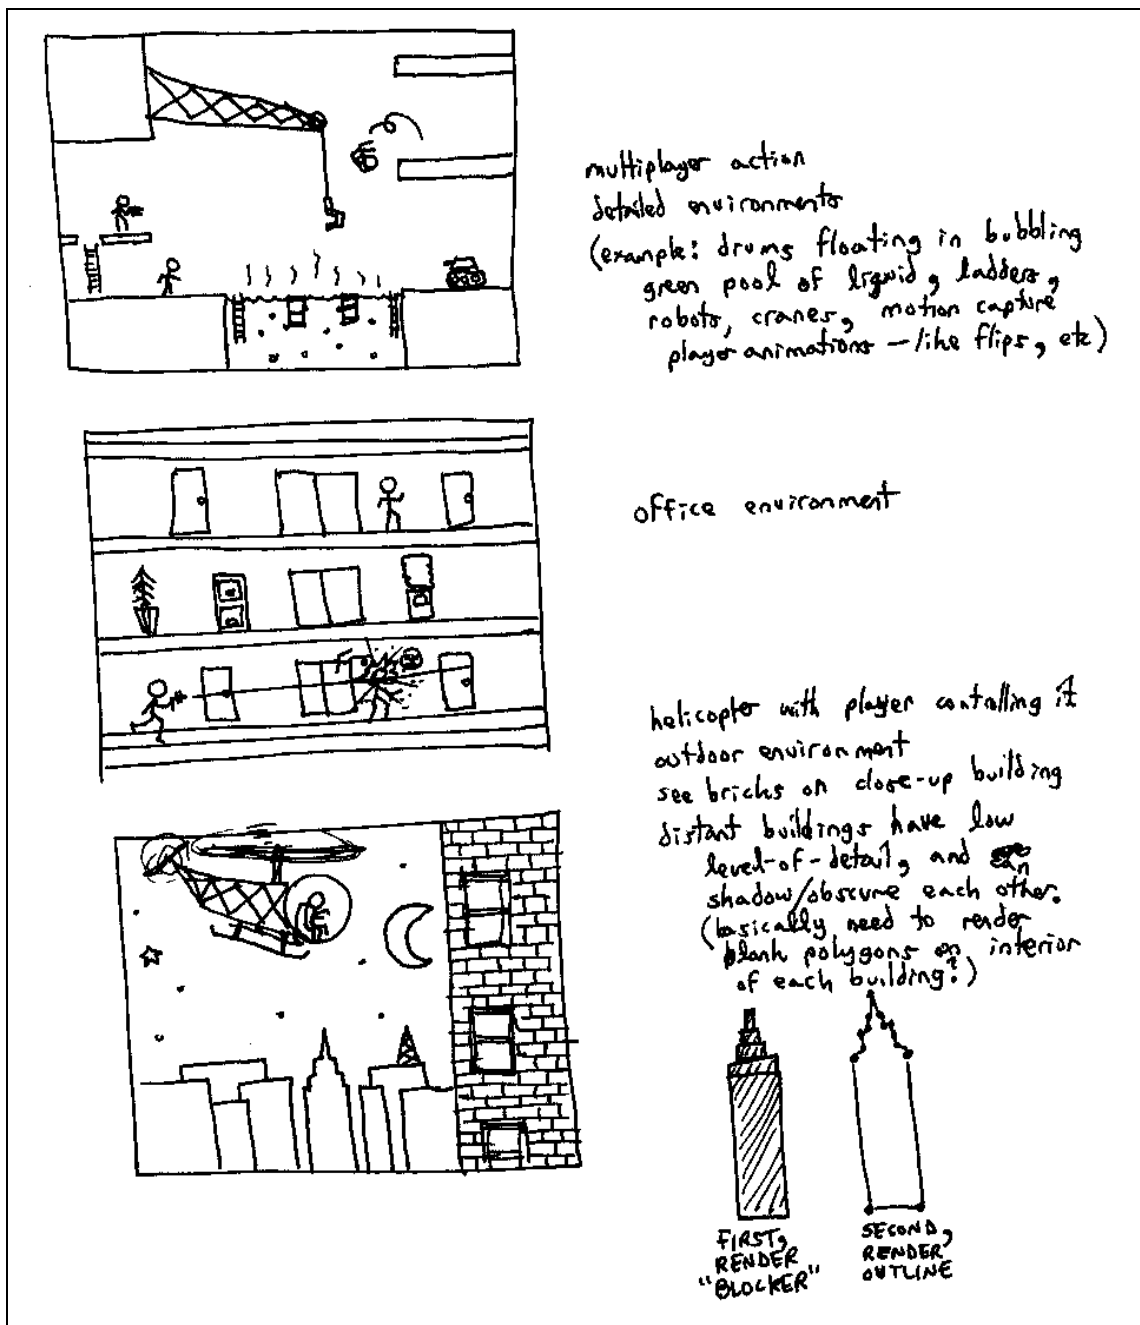 multiplayer action
detailed environments
(example: drums floating in bubbling
green pool of liquid, ladders,
robots, cranes, motion capture
player animations — like flips, etc)
office environment
helicopter with player controlling it
outdoor environment
see bricks on close-up building
distant buildings have low
level-of-detail, and can
shadow/obscure each other.
(basically need to render
blank polygons on interior
of each building?)
FIRST,
RENDER
"BLOCKER"
SECOND,
RENDER
OUTLINE